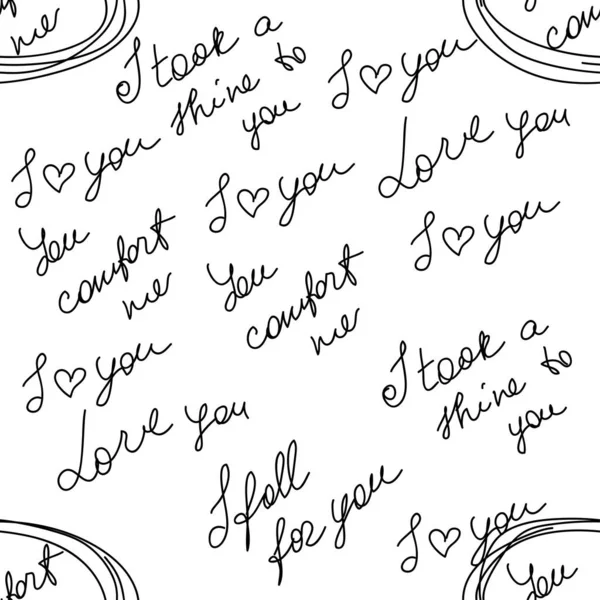 me
I took a
shine to
you
I ♡ you
com
I ♡ you
I ♡ you
Love you
You
comfort
me
You
comfort
me
I ♡ you
I ♡ you
Love you
I took a
shine to
you
I fall
for you
I ♡ you
fort
You